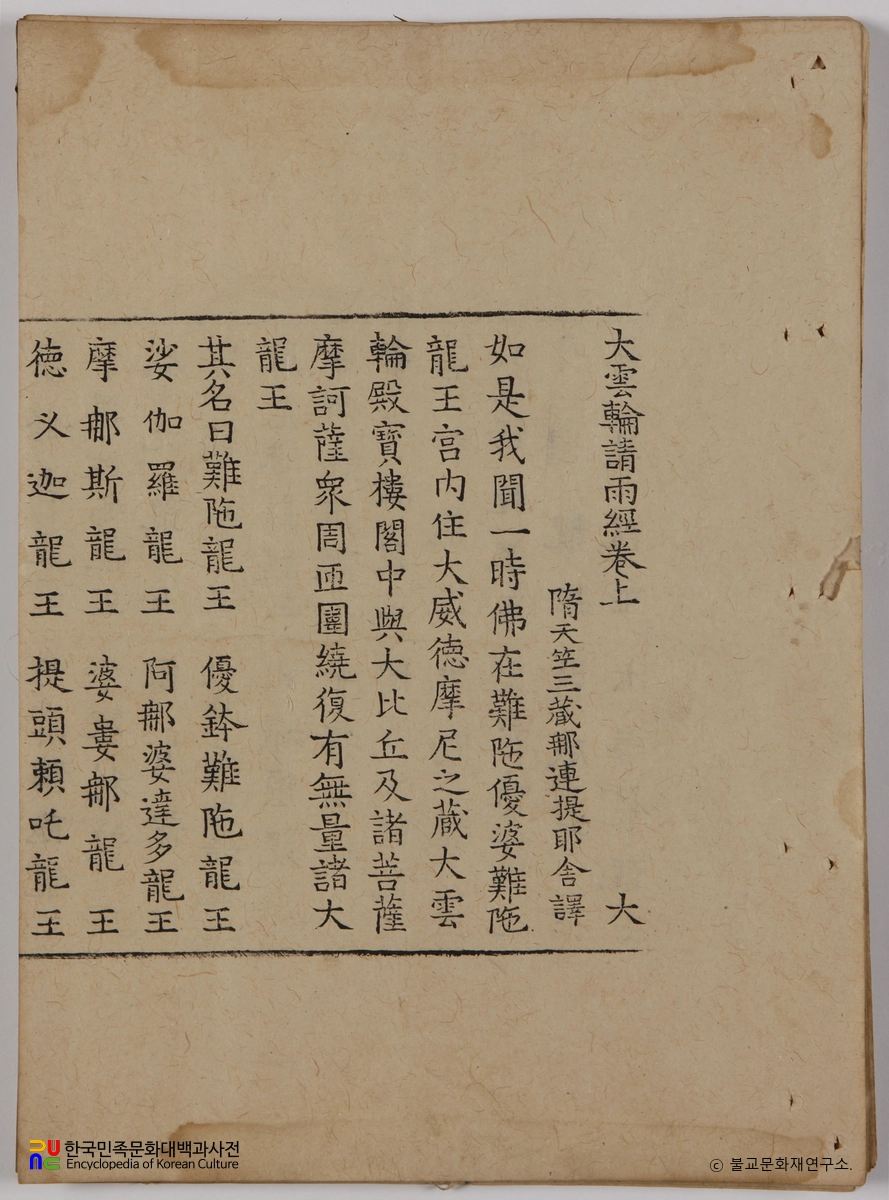 大雲輪請雨經卷上 大
隋天竺三藏那連提耶舍譯
如是我聞一時佛在難陁優婆難陁
龍王宮內住大威德摩尼之藏大雲
輪殿寶樓閣中與大比丘及諸菩薩
摩訶薩衆周匝圍繞復有無量諸大
龍王
其名曰難陁龍王 優鉢難陁龍王
娑伽羅龍王 阿那婆達多龍王
摩那斯龍王 婆婁那龍王
德义迦龍王 提頭頼吒龍王
한국민족문화대백과사전
Encyclopedia of Korean Culture
ⓒ 불교문화재연구소.